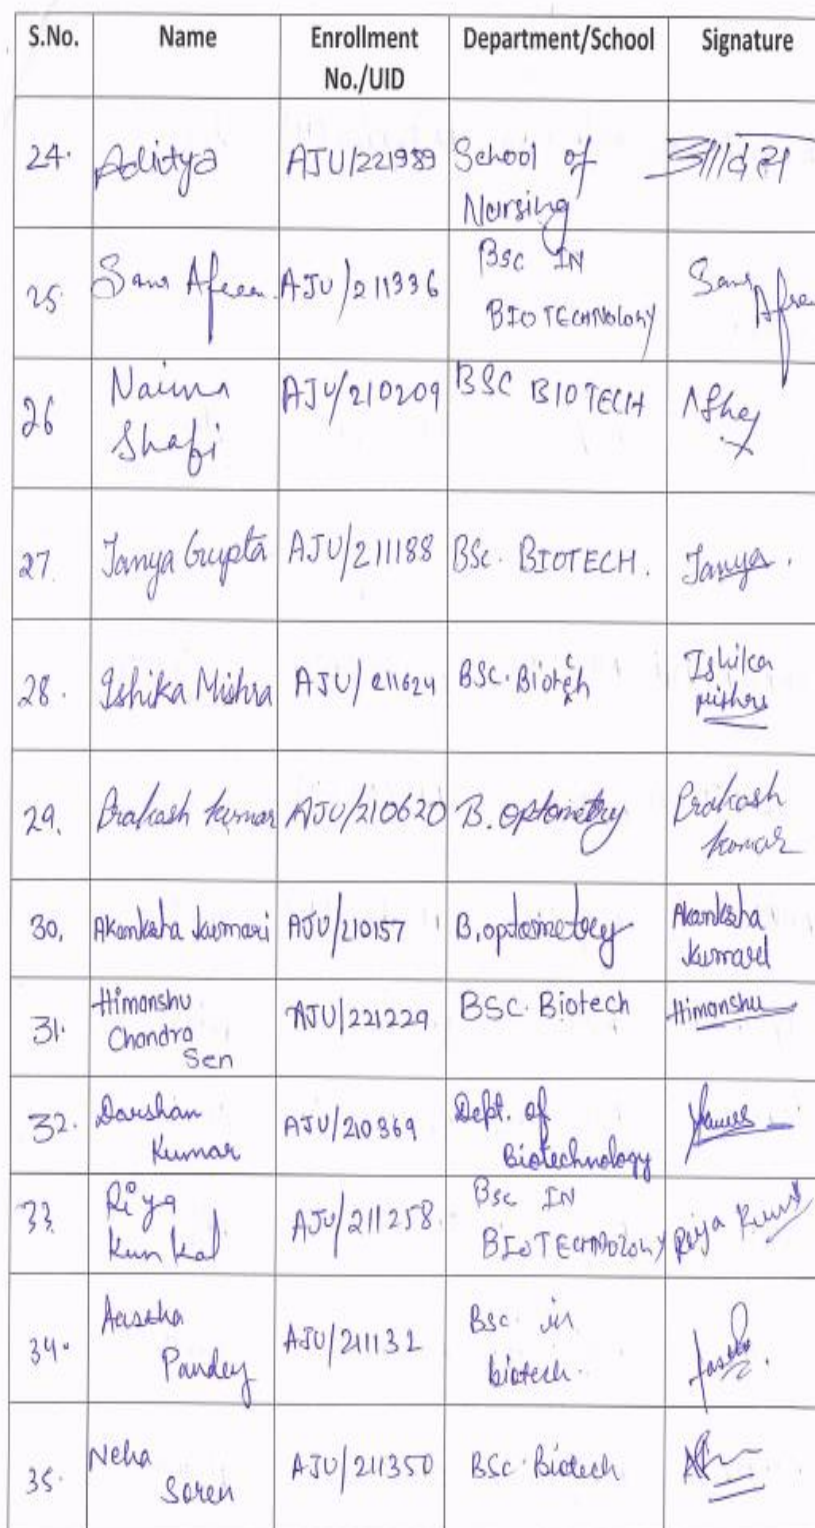 S.No. Name Enrollment No./UID Department/School Signature
24. Aditya AJU/221989 School of Nursing आदित्य
25. Sana Afreen AJU/211336 BSc IN BIOTECHNOLOGY Sana Afreen
26 Naima Shafi AJU/210209 BSC BIOTECH
27 Tanya Gupta AJU/211188 BSc. BIOTECH. Tanya.
28. Ishika Mishra AJU/211624 BSC. Biotech Ishika Mishra
29. Prakash kumar AJU/210620 B. optometry Prakash kumar
30. Akanksha kumari AJU/210157 B.optometry Akanksha kumari
31. Himanshu Chandra Sen AJU/221229 BSC. Biotech Himanshu
32. Darshan Kumar AJU/210369 Dept. of Biotechnology
33. Riya Kunkal AJU/211258 BSc IN BIOTECHNOLOGY Riya
34. Aastha Pandey AJU/211132 BSc. in biotech. Aastha
35. Neha Soren AJU/211350 BSc. Biotech